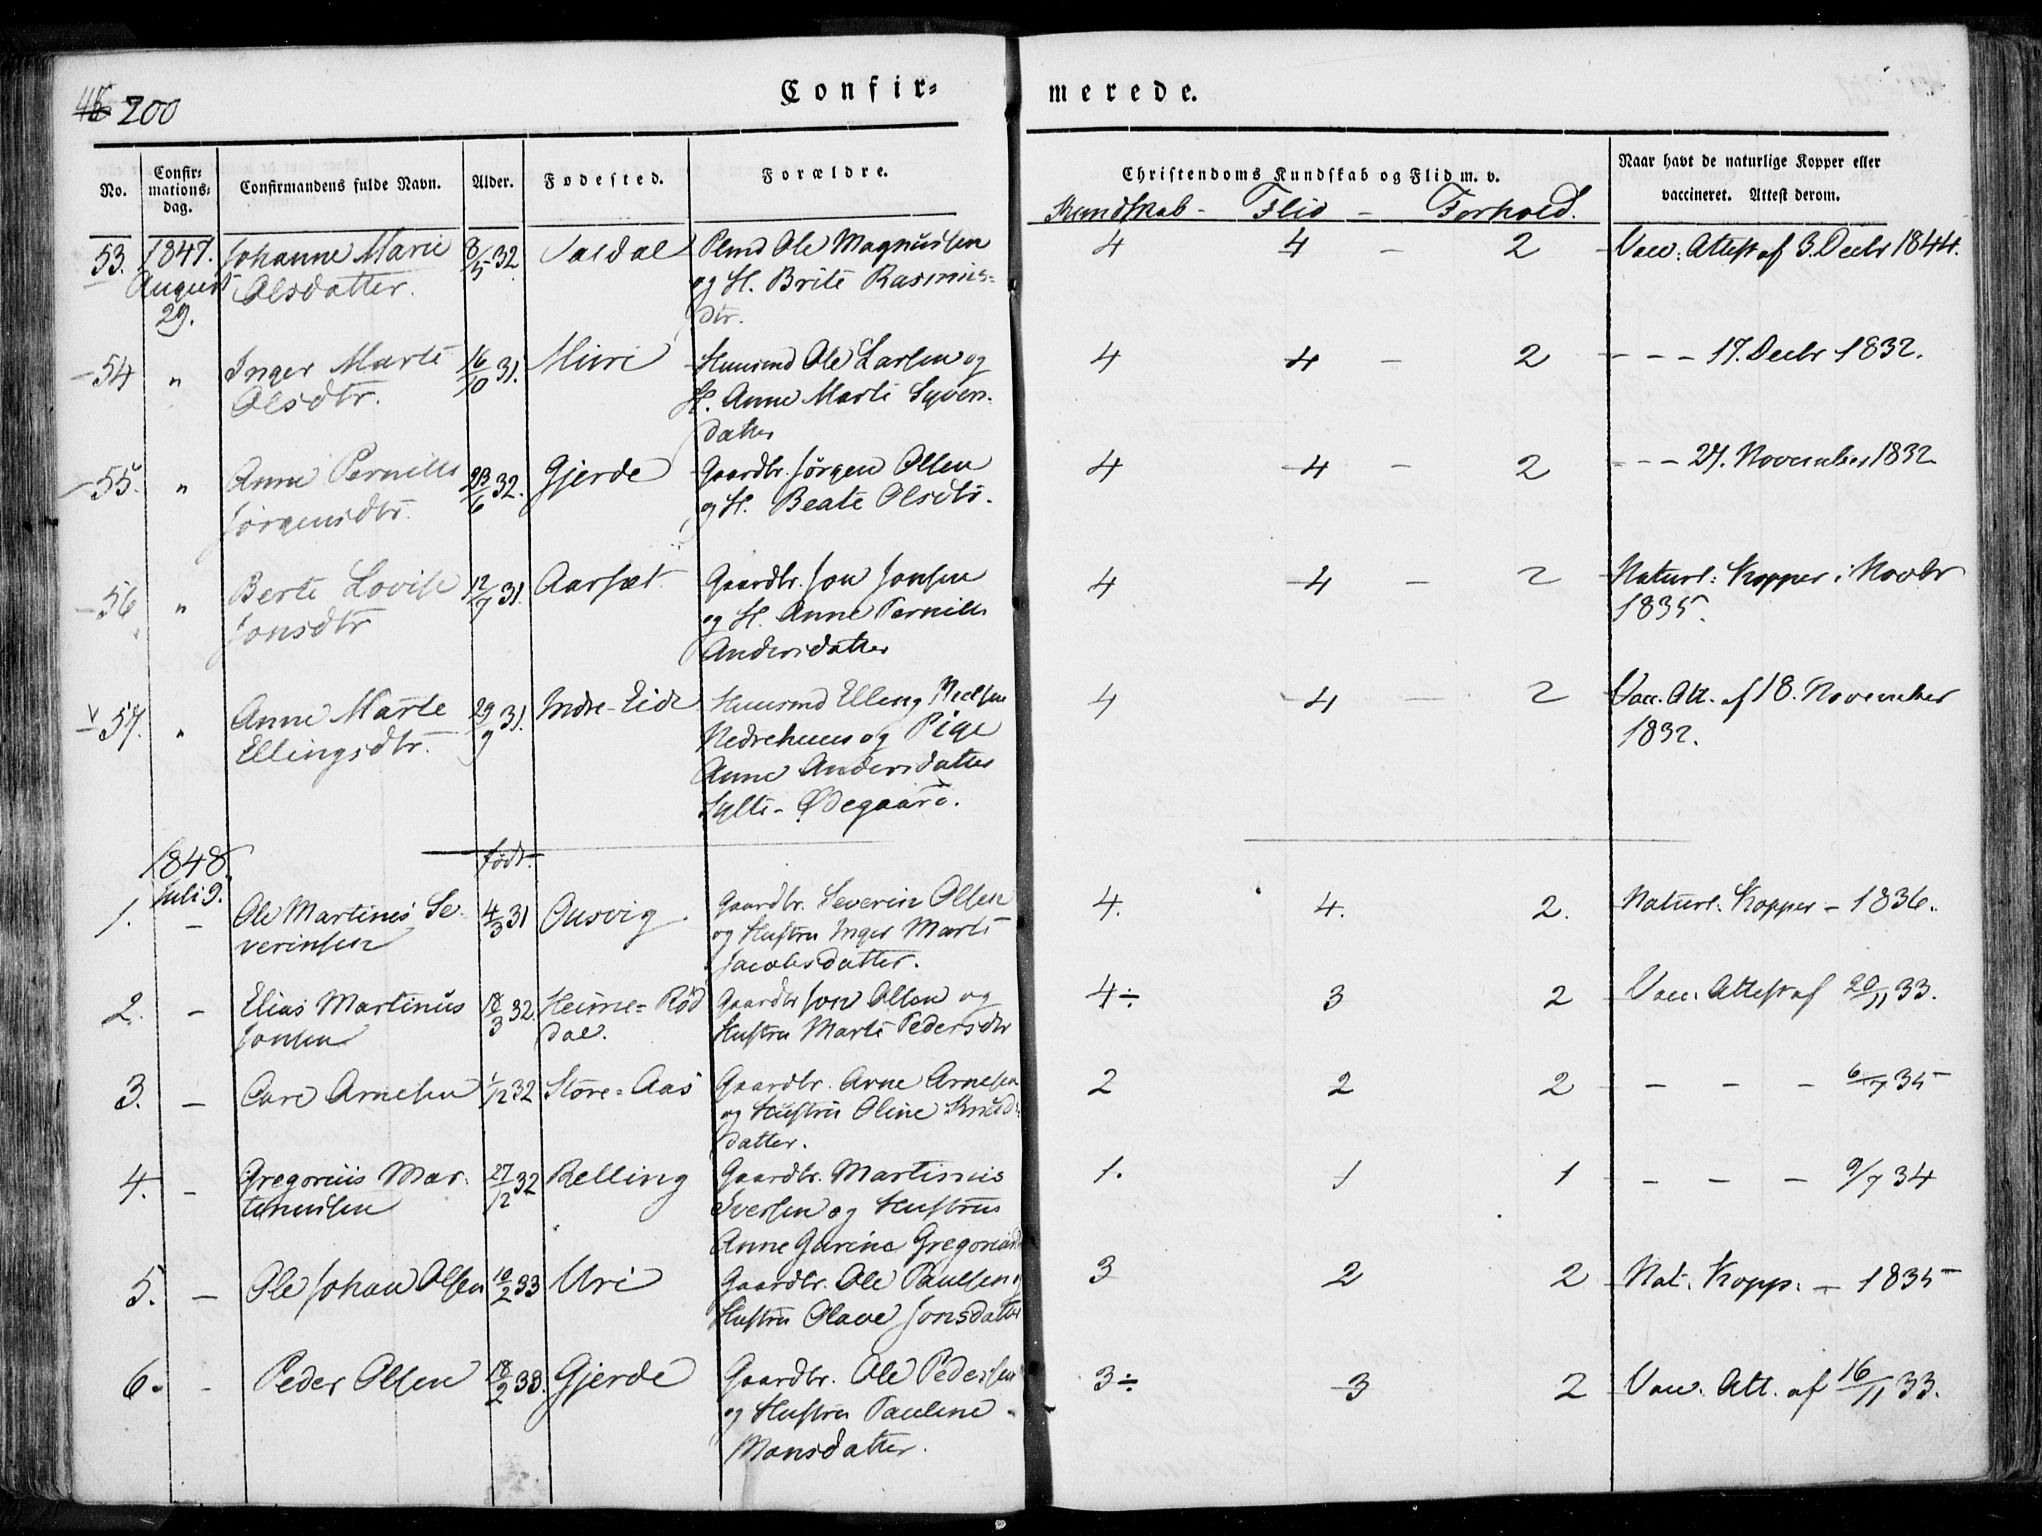 45 200
Confir=
merede.
No.
Confir=
mations=
dag.
Confirmandens fulde Navn.
Alder.
Fødested.
Forældre.
Christendoms Kundskab og Flid m. v.
Kundskab - Flid - Forhold.
Naar havt de naturlige Kopper eller
vaccineret. Attest derom.
53. 1847. Johanne Marie 8/5 32 Saldal Plmd Ole Magnussen 4 4 - 2 Vacc. Attest af 3. Decbr 1844.
August Olsdatter. og H. Brite Rasmus=
29. dtr.
54 " Inger Marte 16/10 31. Muri Huusmd Ole Larsen og 4 4 - 2 - - - 17. Decbr 1832.
Olsdtr. H. Anne Marte Syvers=
datter
55. " Anne Pernille 23/6 32. Gjerde Gaardbr. Jørgen Olsen 4 4 - 2 - - - 27. November 1832
Jørgensdtr. og H. Beate Olsdtr.
56 " Berte Lovise 12/7 31. Aarset Gaardbr. Jon Jonsen 4 4 - 2 Naturl: Kopper i Novbr
Jonsdtr og H. Anne Pernille 1835.
Andersdatter
57. " Anne Marte 29/9 31. Indre-Eide Huusmd Elling Nielsen 4 4 - 2 Vacc. Att. af 18. November
Ellingsdtr. Nedrehuus og Pige 1832.
Anne Andersdatter
Sylte-Ødegaard.
1848. født.
1. Juli 9. Ole Martinus Se= 4/3 31 Onsvig Gaardbr. Severin Olsen 4. 4. 2. Naturl. Kopper - 1836.
- verinsen og Hustru Inger Marte
Jacobsdatter.
2. - Elias Martinus 18/3 32. Heime=Rød Gaardbr Jon Olsen og 4÷ 3 2 Vacc. Attest af 20/11 33.
Jonsen dal. Hustru Marte Pedersdtr
3. - Care Arnesen 1/12 32 Store=Aas Gaardbr. Arne Arnesen 2 2 2 - - - 6/7 35
og Hustru Oline Knuds=
datter.
4. - Gregorius Mar= 27/12 32 Relling Gaardbr. Martinus 1. 1 1 - - - 9/7 34
tinussen Iversen og Hustrue
Anne Gurine Gregoriusd
5. - Ole Johan Olsen 10/2 33 Uri Gaardbr. Ole Paulsen og 3 2 2 Nat. Kopp. - 1835
Hustru Olave Jonsdatter
6. - Peder Olsen 18/2 33. Gjerde Gaardbr. Ole Pedersen 3÷ 3 2 Vacc. Att. af 16/11 33.
og Hustru Pauline
Monsdatter.